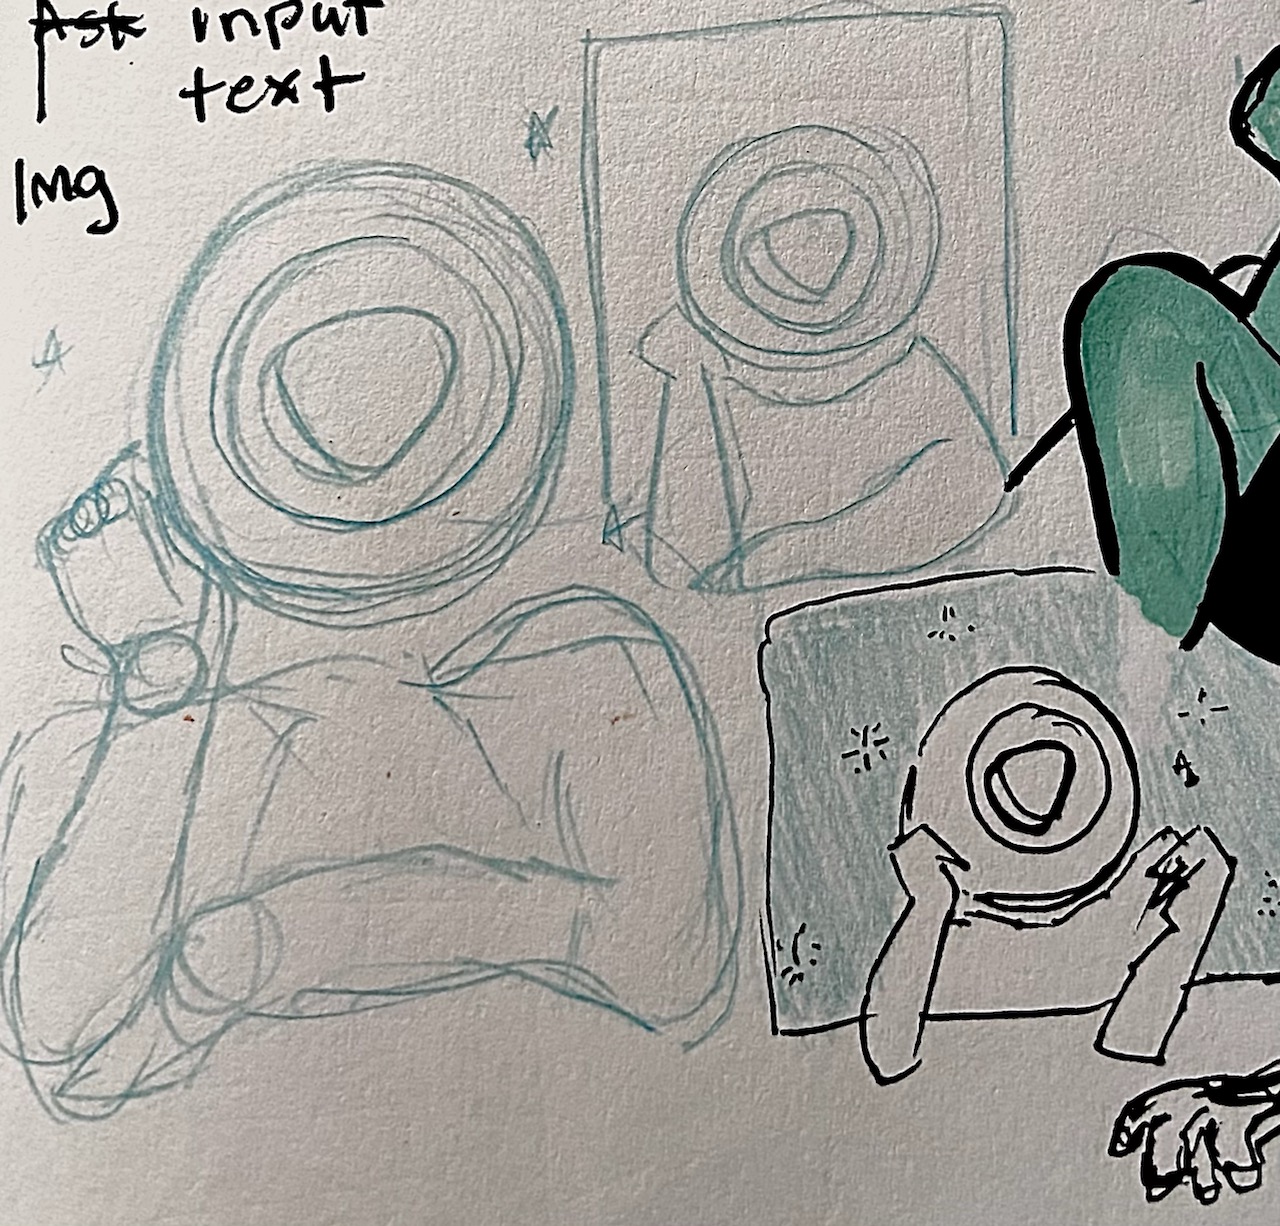 Ask input
text
Img